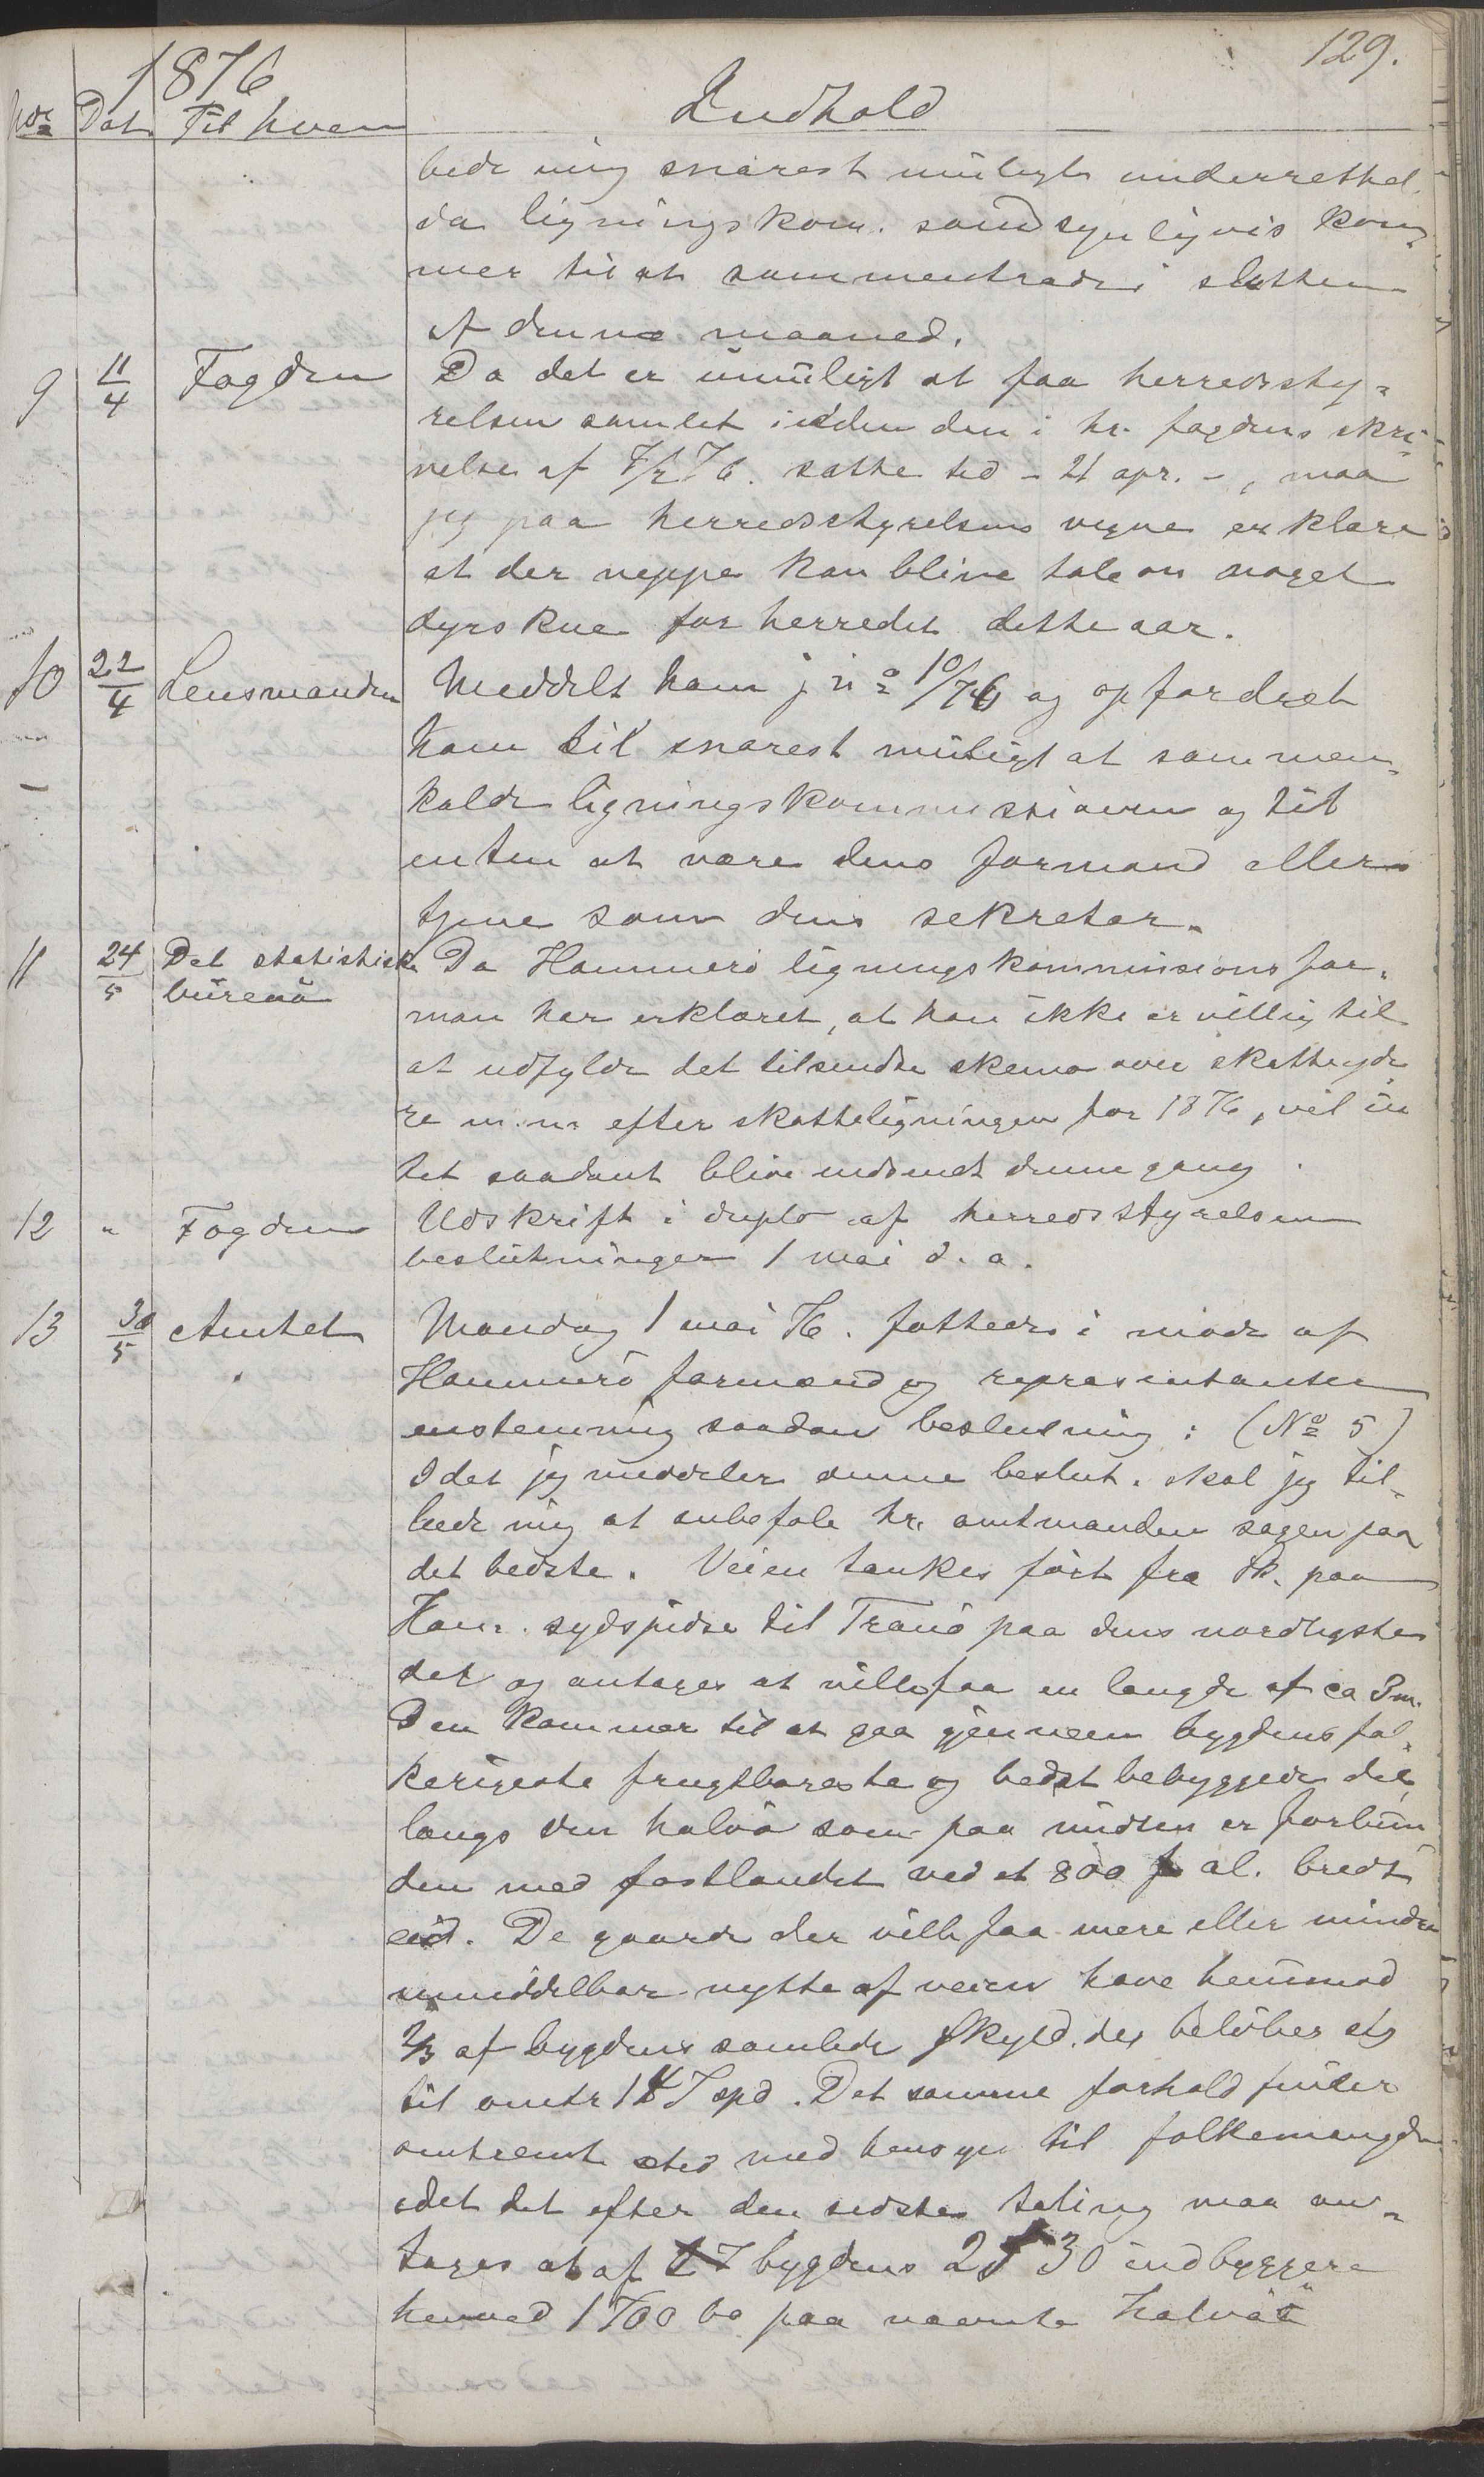 129.
1876
No Dat Til hvem Indhold
bede mig snarest muligt underrettet
da ligningskom. sandsynligvis kom-
mer til at sammentræde i slutten
af denne maaned.
9 11/4 Fogden Da det er umuligt at faa herredssty-
relsen samlet inden den i hr. fogdens skri-
velse af 76. satte tid - 21 apr. -, maa
jeg paa herredsstyrelsens vegne erklære
at der neppe kan blive tale om noget
dyrskue for herredet dette aar.
10 22/4 Lensmanden Meddelt ham j no 10/76 og opfordret
ham til snarest muligt at sammen-
kalde ligningskommissionen og til
enten at være dens formand eller
tjene som dens sekretær.
11 24/5 Det statistiske Da Hammerö ligningskommissions for-
büreaü
man har erklæret, at han ikke er villig til
at udfylde det tilsendte skema over skatteyde
re m.m. efter skatteligningen for 1876, vil in
tet saadant blive indsendt denne gang.
12 " Fogden Udskrift i duplo af herredsstyrelsens
beslutninger 1 mai d. a.
13 30/5 Amtet Mandag 1 mai 76. fattedes i møde af
Hammerö formænd og repræsentanter
enstemmig saadan beslutning: (No 5)
Idet jeg meddeler denne beslut. skal jeg til-
lade mig at anbefale hr. amtmanden sagen paa
det bedste. Veien tænkes ført fra Pk. paa
Ham. sydspidse til Tranö paa dens nordligste
del og antages at ville faa en længde af ca 3 m.
Den kommer til at gaa gjennem bygdens fol-
kerigeste frugtbareste og bedst bebyggede del
langs den halvö som paa midten er forbun
den med fastlandet ved et 800 al. bredt
eid. De gaarde der ville faa mere eller mindre
umiddelbar nytte af veien have henimod
2/3 af bygdens samlede skyld, der beløber sig
til omtr 147 spd. Det samme forhold finder
omtrent sted med hensyn til folkemængden
idet det efter den sidste tæling maa an-
tages at af bygdens 2530 indbyggere
henved 1700 bo paa nævnte halvö